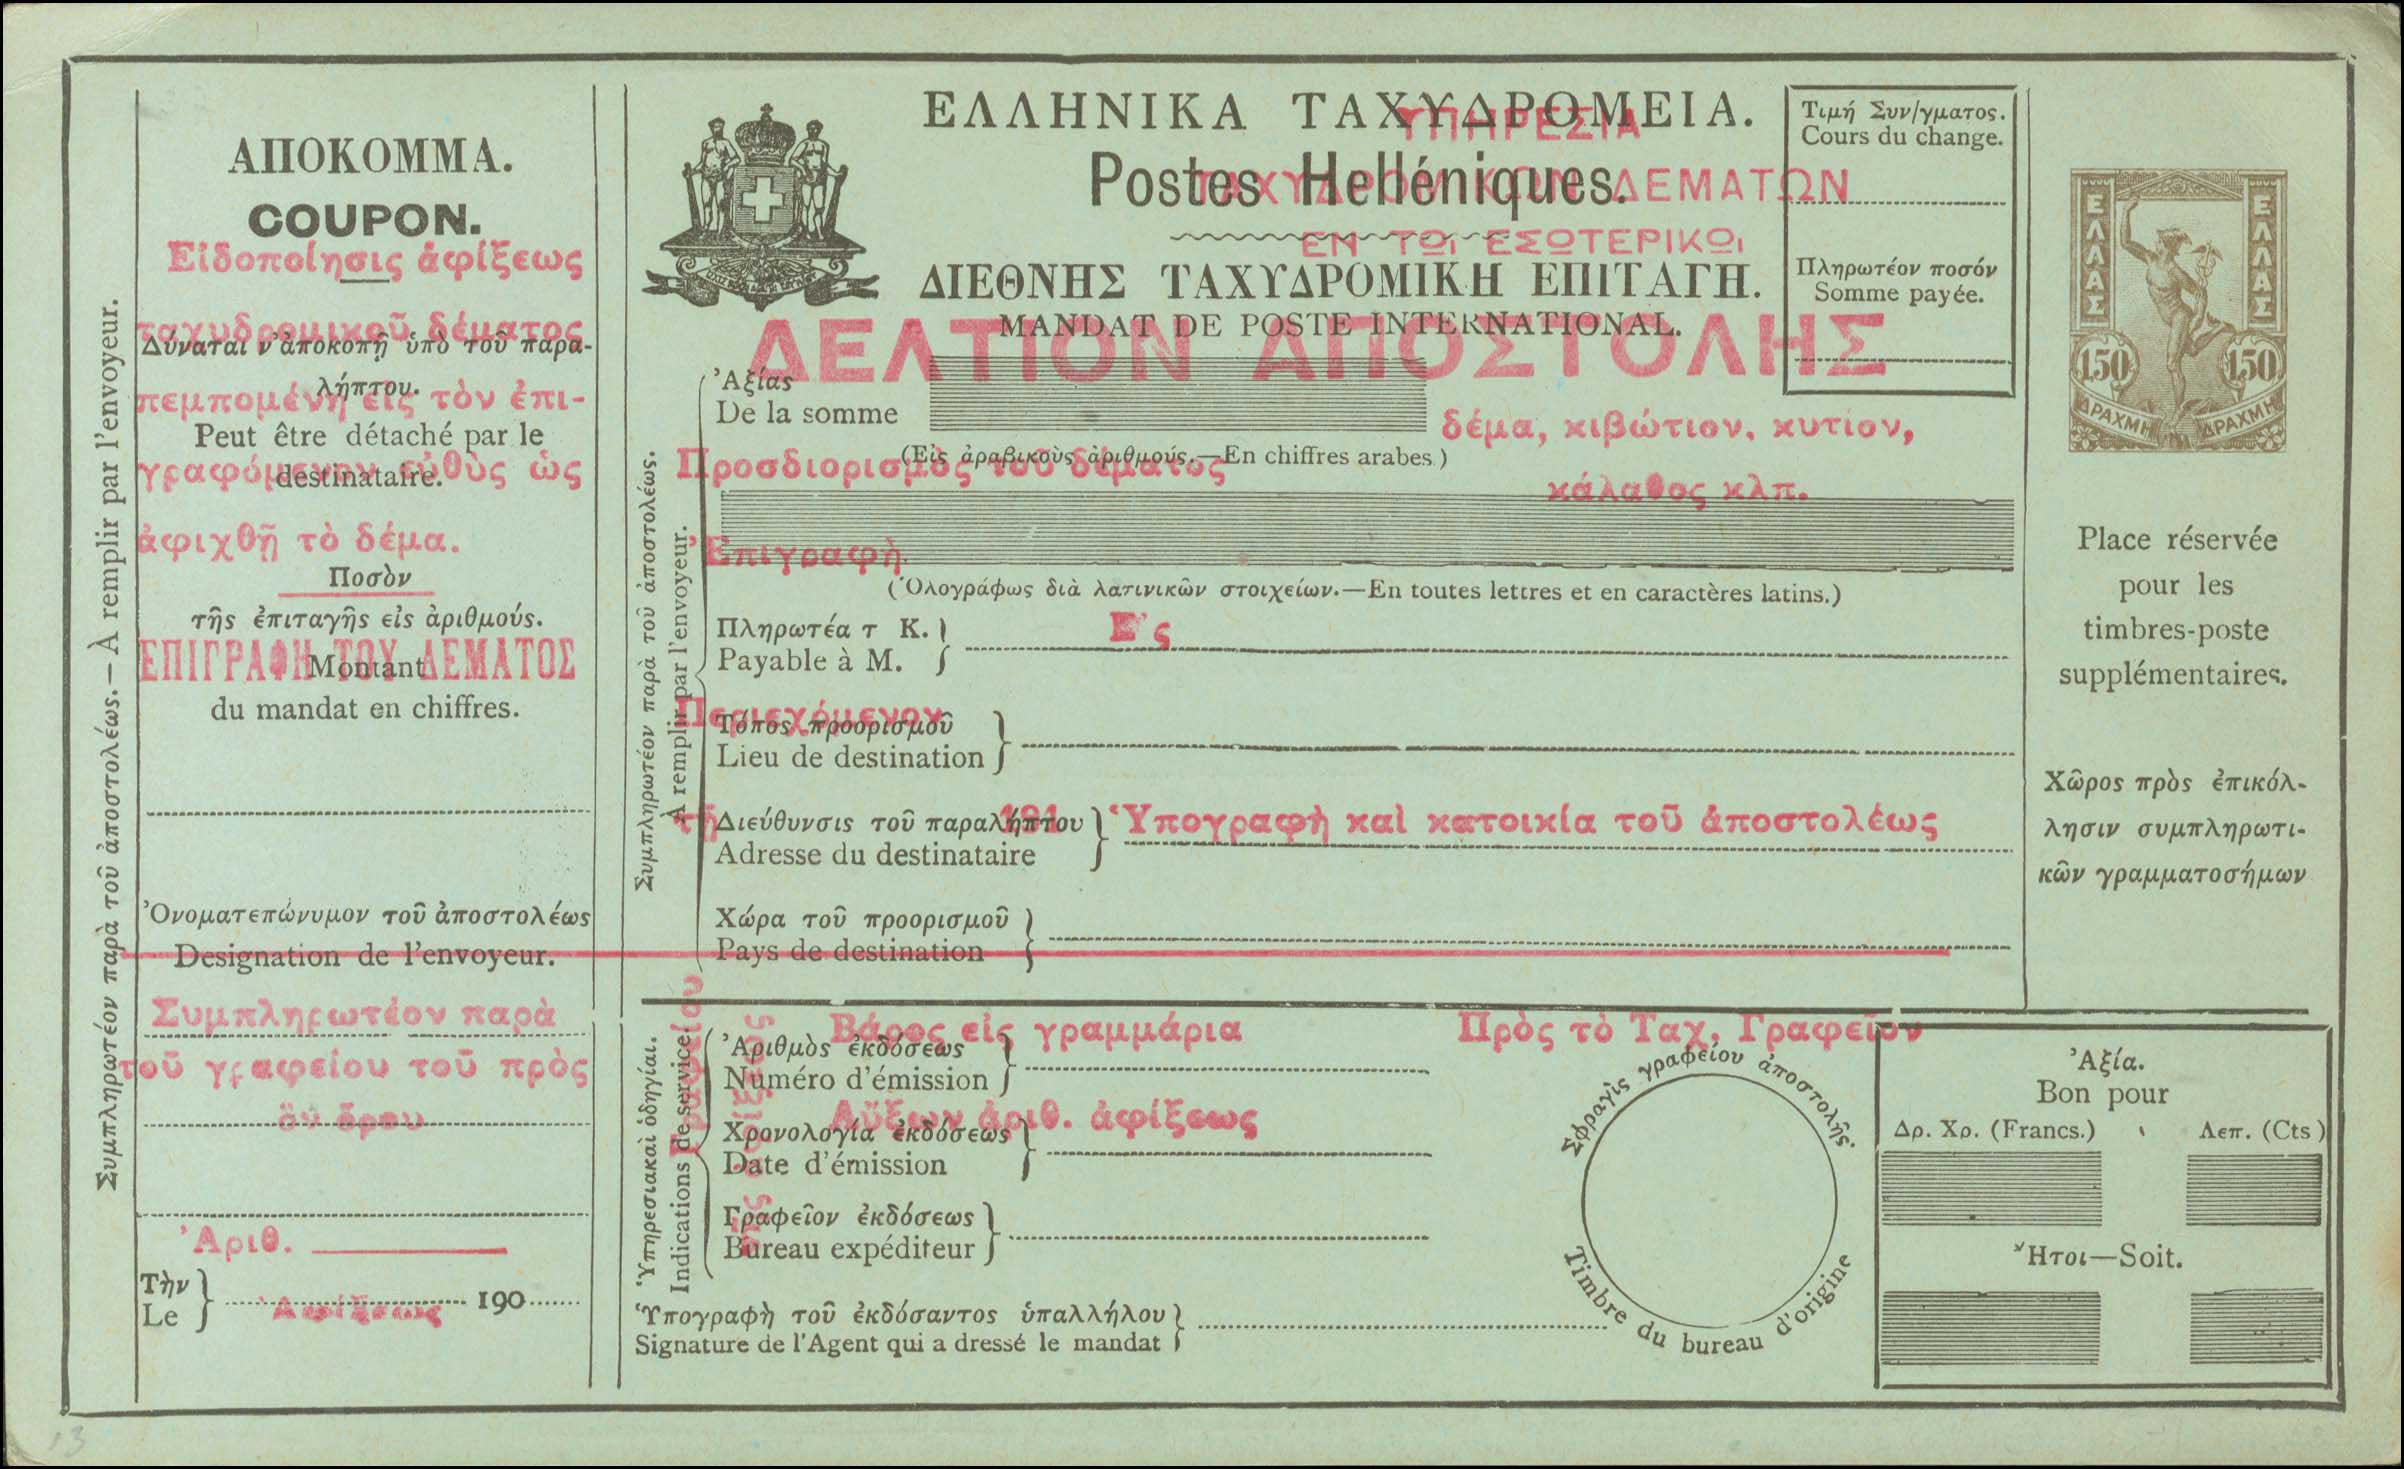 ΑΠΟΚΟΜΜΑ.
COUPON.
Εἰδοποίησις ἀφίξεως
ταχυδρομικοῦ δέματος
Δύναται ν' ἀποκοπῇ ὑπὸ τοῦ παρα-
λήπτου.
πεμπομένη εἰς τὸν ἐπι-
Peut être détaché par le
γραφόμενον εὐθὺς ὡς
destinataire.
ἀφιχθῇ τὸ δέμα.
Ποσὸν
τῆς ἐπιταγῆς εἰς ἀριθμούς.
ΕΠΙΓΡΑΦΗ ΤΟΥ ΔΕΜΑΤΟΣ
Montant
du mandat en chiffres.
Ὀνοματεπώνυμον τοῦ ἀποστολέως
Designation de l'envoyeur.
Συμπληρωτέον παρὰ
τοῦ γραφείου τοῦ πρὸς
ὃν ὅρον
Ἀριθ.
Τὴν
Le
Ἀφίξεως
190
Συμπληρωτέον παρὰ τοῦ ἀποστολέως.—À remplir par l'envoyeur.
ΕΛΛΗΝΙΚΑ ΤΑΧΥΔΡΟΜΕΙΑ.
ΥΠΗΡΕΣΙΑ
Postes Helléniques.
ΤΑΧΥΔΡΟΜΙΚΩΝ ΔΕΜΑΤΩΝ
ΕΝ ΤΩι ΕΣΩΤΕΡΙΚΩι
ΔΙΕΘΝΗΣ ΤΑΧΥΔΡΟΜΙΚΗ ΕΠΙΤΑΓΗ.
MANDAT DE POSTE INTERNATIONAL.
ΔΕΛΤΙΟΝ ΑΠΟΣΤΟΛΗΣ
Τιμή Συν/γματος.
Cours du change.
Πληρωτέον ποσόν
Somme payée.
Ἀξίας
De la somme
δέμα, κιβώτιον, κυτίον,
(Εἰς ἀραβικοὺς ἀριθμούς.—En chiffres arabes.)
Προσδιορισμὸς τοῦ δέματος
κάλαθος κλπ.
Ἐπιγραφὴ
(Ὁλογράφως διὰ λατινικῶν στοιχείων.—En toutes lettres et en caractères latins.)
Πληρωτέα τ Κ.
Payable à M.
Ε'ς
Περιεχόμενον
Τόπος προορισμοῦ
Lieu de destination
τῇ 191
Διεύθυνσις τοῦ παραλήπτου
Adresse du destinataire
Ὑπογραφὴ καὶ κατοικία τοῦ ἀποστολέως
Χώρα τοῦ προορισμοῦ
Pays de destination
Συμπληρωτέον παρὰ τοῦ ἀποστολέως.
À remplir par l'envoyeur.
Ὑπηρεσιακαὶ ὁδηγίαι.
Indications de service.
Βάρος εἰς γραμμάρια
Πρὸς τὸ Ταχ. Γραφεῖον
Ἀριθμὸς ἐκδόσεως
Numéro d'émission
Αὔξων ἀριθ. ἀφίξεως
Χρονολογία ἐκδόσεως
Date d'émission
Γραφεῖον ἐκδόσεως
Bureau expéditeur
Ὑπογραφὴ τοῦ ἐκδόσαντος ὑπαλλήλου
Signature de l'Agent qui a dressé le mandat
Σφραγὶς γραφείου ἀποστολῆς.
Timbre du bureau d'origine
Ἀξία.
Bon pour
Δρ. Χρ. (Francs.) Λεπ. (Cts)
Ἤτοι—Soit.
ΕΛΛΑΣ
ΕΛΛΑΣ
1.50 1.50
ΔΡΑΧΜΗ ΔΡΑΧΜΗ
Place réservée
pour les
timbres-poste
supplémentaires.
Χῶρος πρὸς ἐπικόλ-
λησιν συμπληρωτι-
κῶν γραμματοσήμων
13